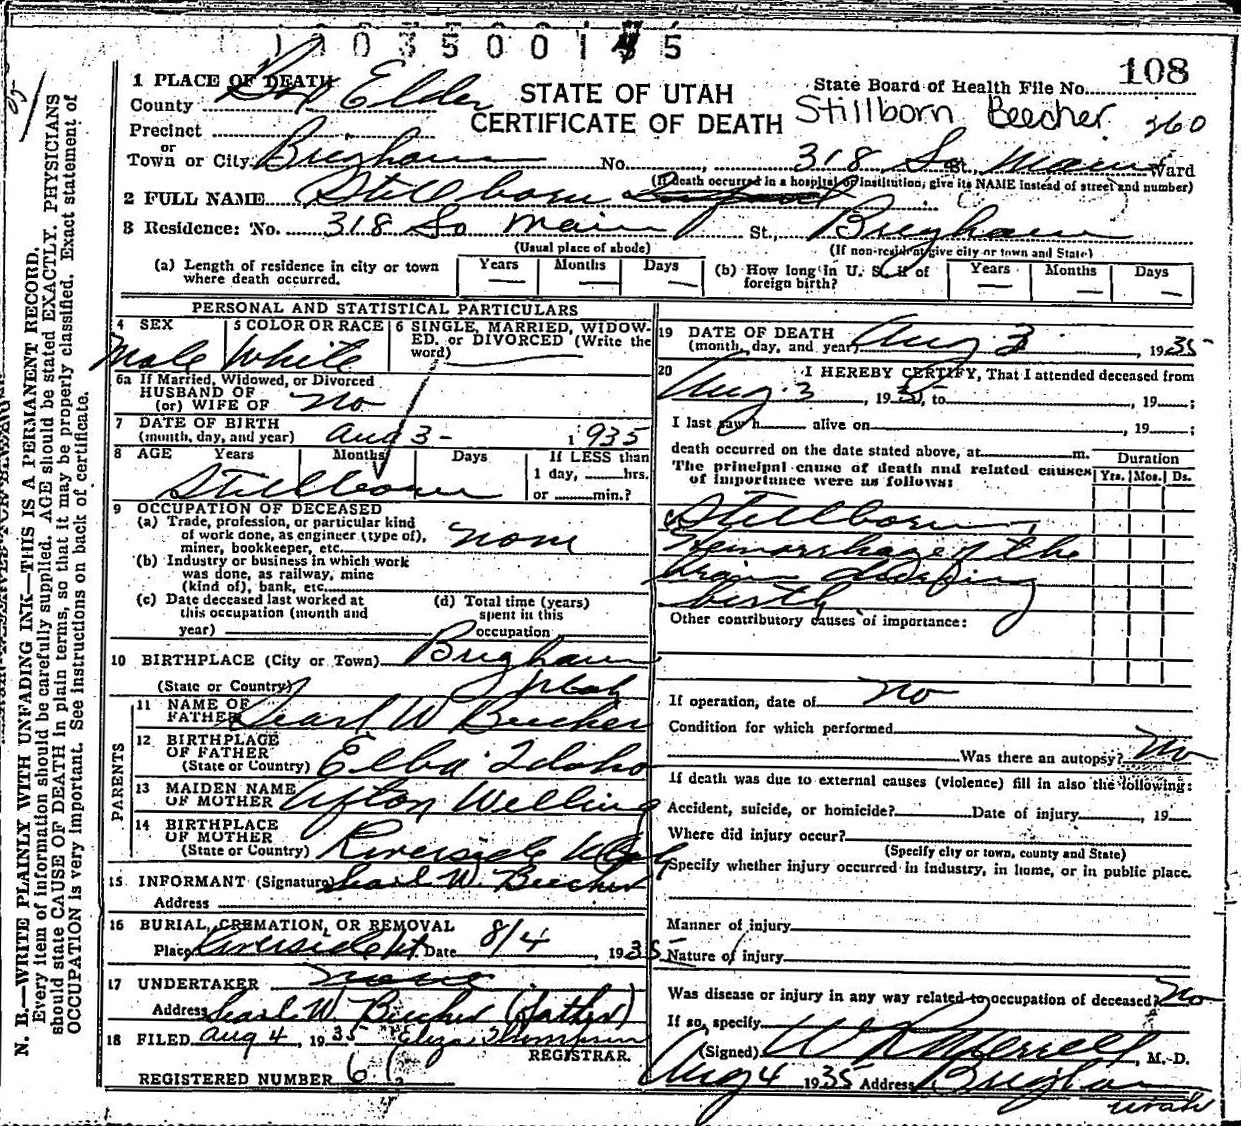 1003500145
108
1 PLACE OF DEATH
County Box Elder
STATE OF UTAH
CERTIFICATE OF DEATH
State Board of Health File No.
Stillborn Beecher 260
Precinct
or
Town or City Brigham No. 318 So St., Main Ward
(If death occurred in a hospital or institution, give its NAME instead of street and number)
2 FULL NAME Stillborn
3 Residence: No. 318 So Main St., Brigham
(Usual place of abode) (If non-resident give city or town and State)
(a) Length of residence in city or town where death occurred. Years — Months — Days —
(b) How long in U. S. if of foreign birth? Years — Months — Days —
PERSONAL AND STATISTICAL PARTICULARS
4 SEX Male
5 COLOR OR RACE White
6 SINGLE, MARRIED, WIDOWED, or DIVORCED (Write the word)
6a If Married, Widowed, or Divorced
HUSBAND OF
(or) WIFE OF no
7 DATE OF BIRTH
(month, day, and year) Aug 3 - 1935
8 AGE Years Months Days If LESS than
1 day, hrs.
or min.?
Stillborn
9 OCCUPATION OF DECEASED
(a) Trade, profession, or particular kind
of work done, as engineer (type of),
miner, bookkeeper, etc. none
(b) Industry or business in which work
was done, as railway, mine
(kind of), bank, etc.
(c) Date deceased last worked at
this occupation (month and
year)
(d) Total time (years)
spent in this
occupation
10 BIRTHPLACE (City or Town) Brigham
(State or Country) Utah
PARENTS
11 NAME OF
FATHER Searl W Beecher
12 BIRTHPLACE
OF FATHER
(State or Country) Elba Idaho
13 MAIDEN NAME
OF MOTHER Afton Welling
14 BIRTHPLACE
OF MOTHER
(State or Country) Riverside Utah
15 INFORMANT (Signature) Searl W. Beecher
Address
16 BURIAL, CREMATION, OR REMOVAL
Place Riverside Ut Date 8/4, 1935
17 UNDERTAKER none
Address Searl W. Beecher (father)
18 FILED Aug 4, 1935 Eliza Thompson
REGISTRAR.
REGISTERED NUMBER
19 DATE OF DEATH
(month, day, and year) Aug 3, 1935
20 I HEREBY CERTIFY, That I attended deceased from
Aug 3, 1935, to , 19 ;
I last saw h alive on , 19 ;
death occurred on the date stated above, at m.
The principal cause of death and related causes
of importance were as follows:
Duration
Yrs. Mos. Ds.
Stillborn,
Hemorrhage of the
brain during
birth
Other contributory causes of importance:
If operation, date of no
Condition for which performed
Was there an autopsy? No
If death was due to external causes (violence) fill in also the following:
Accident, suicide, or homicide? Date of injury , 19
Where did injury occur?
(Specify city or town, county and State)
Specify whether injury occurred in industry, in home, or in public place.
Manner of injury
Nature of injury
Was disease or injury in any way related to occupation of deceased? No
If so, specify
(Signed) W R Merrell, M. D.
Aug 4 1935 Address Brigham
Utah
N. B.—WRITE PLAINLY WITH UNFADING INK—THIS IS A PERMANENT RECORD.
Every item of information should be carefully supplied. AGE should be stated EXACTLY. PHYSICIANS
should state CAUSE OF DEATH in plain terms, so that it may be properly classified. Exact statement of
OCCUPATION is very important. See instructions on back of certificate.